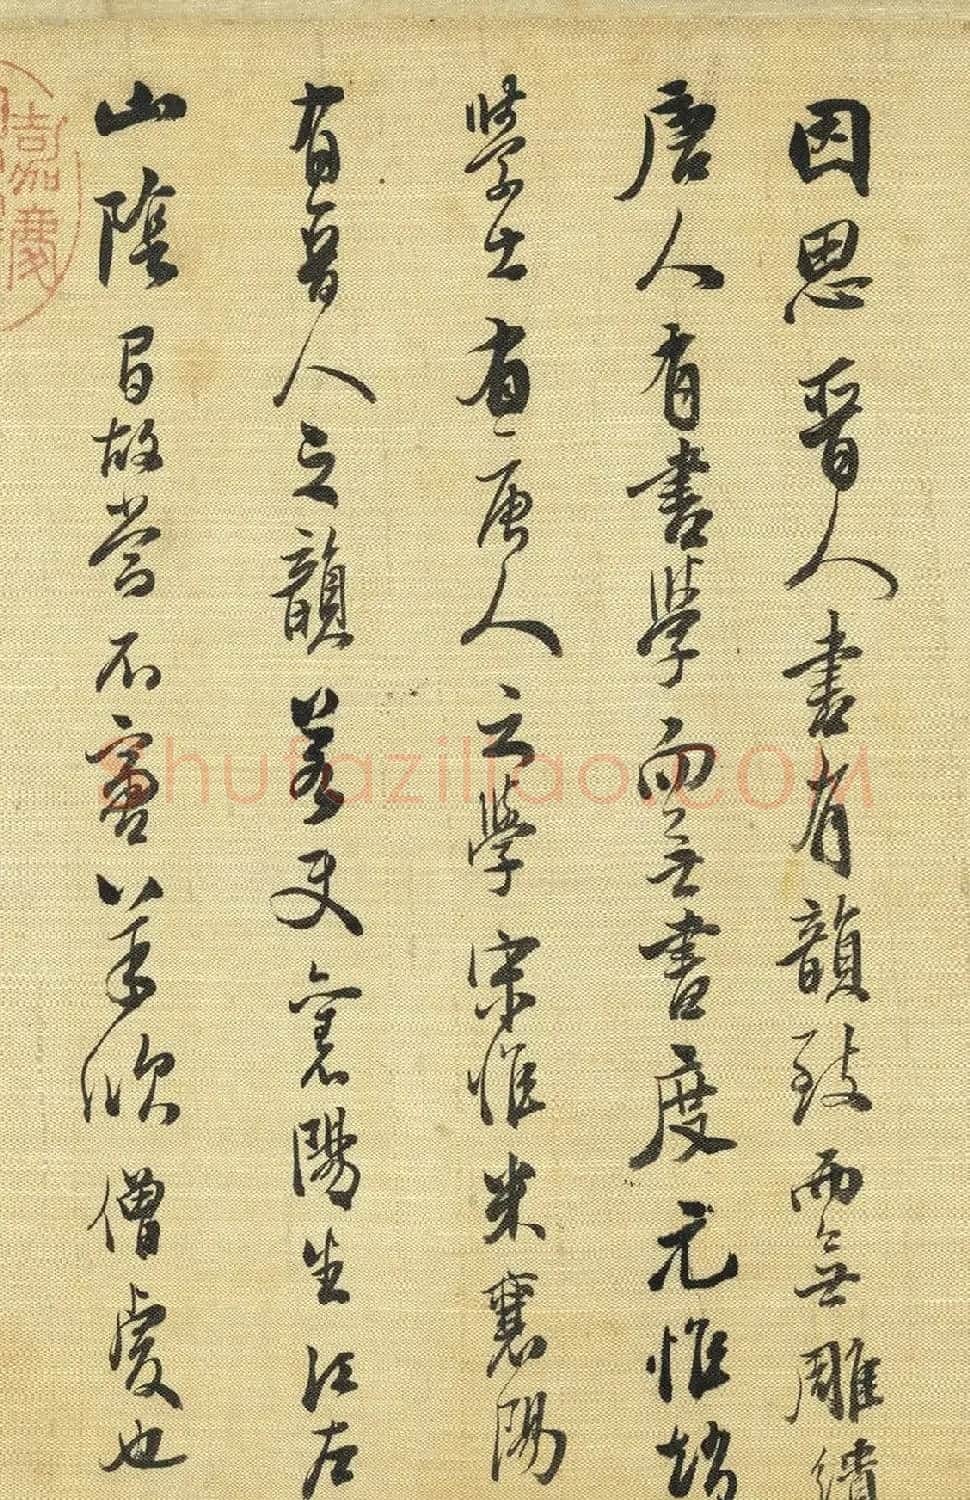 因思晉人書有韻致而無雕繢
唐人有書學而無書度元惟趙
學士有唐人之學宋惟米襄陽
有晉人之韻若更襄陽生江左
山陰間故當不啻羊欣僧虔也
嘉慶
shufaziliao.com